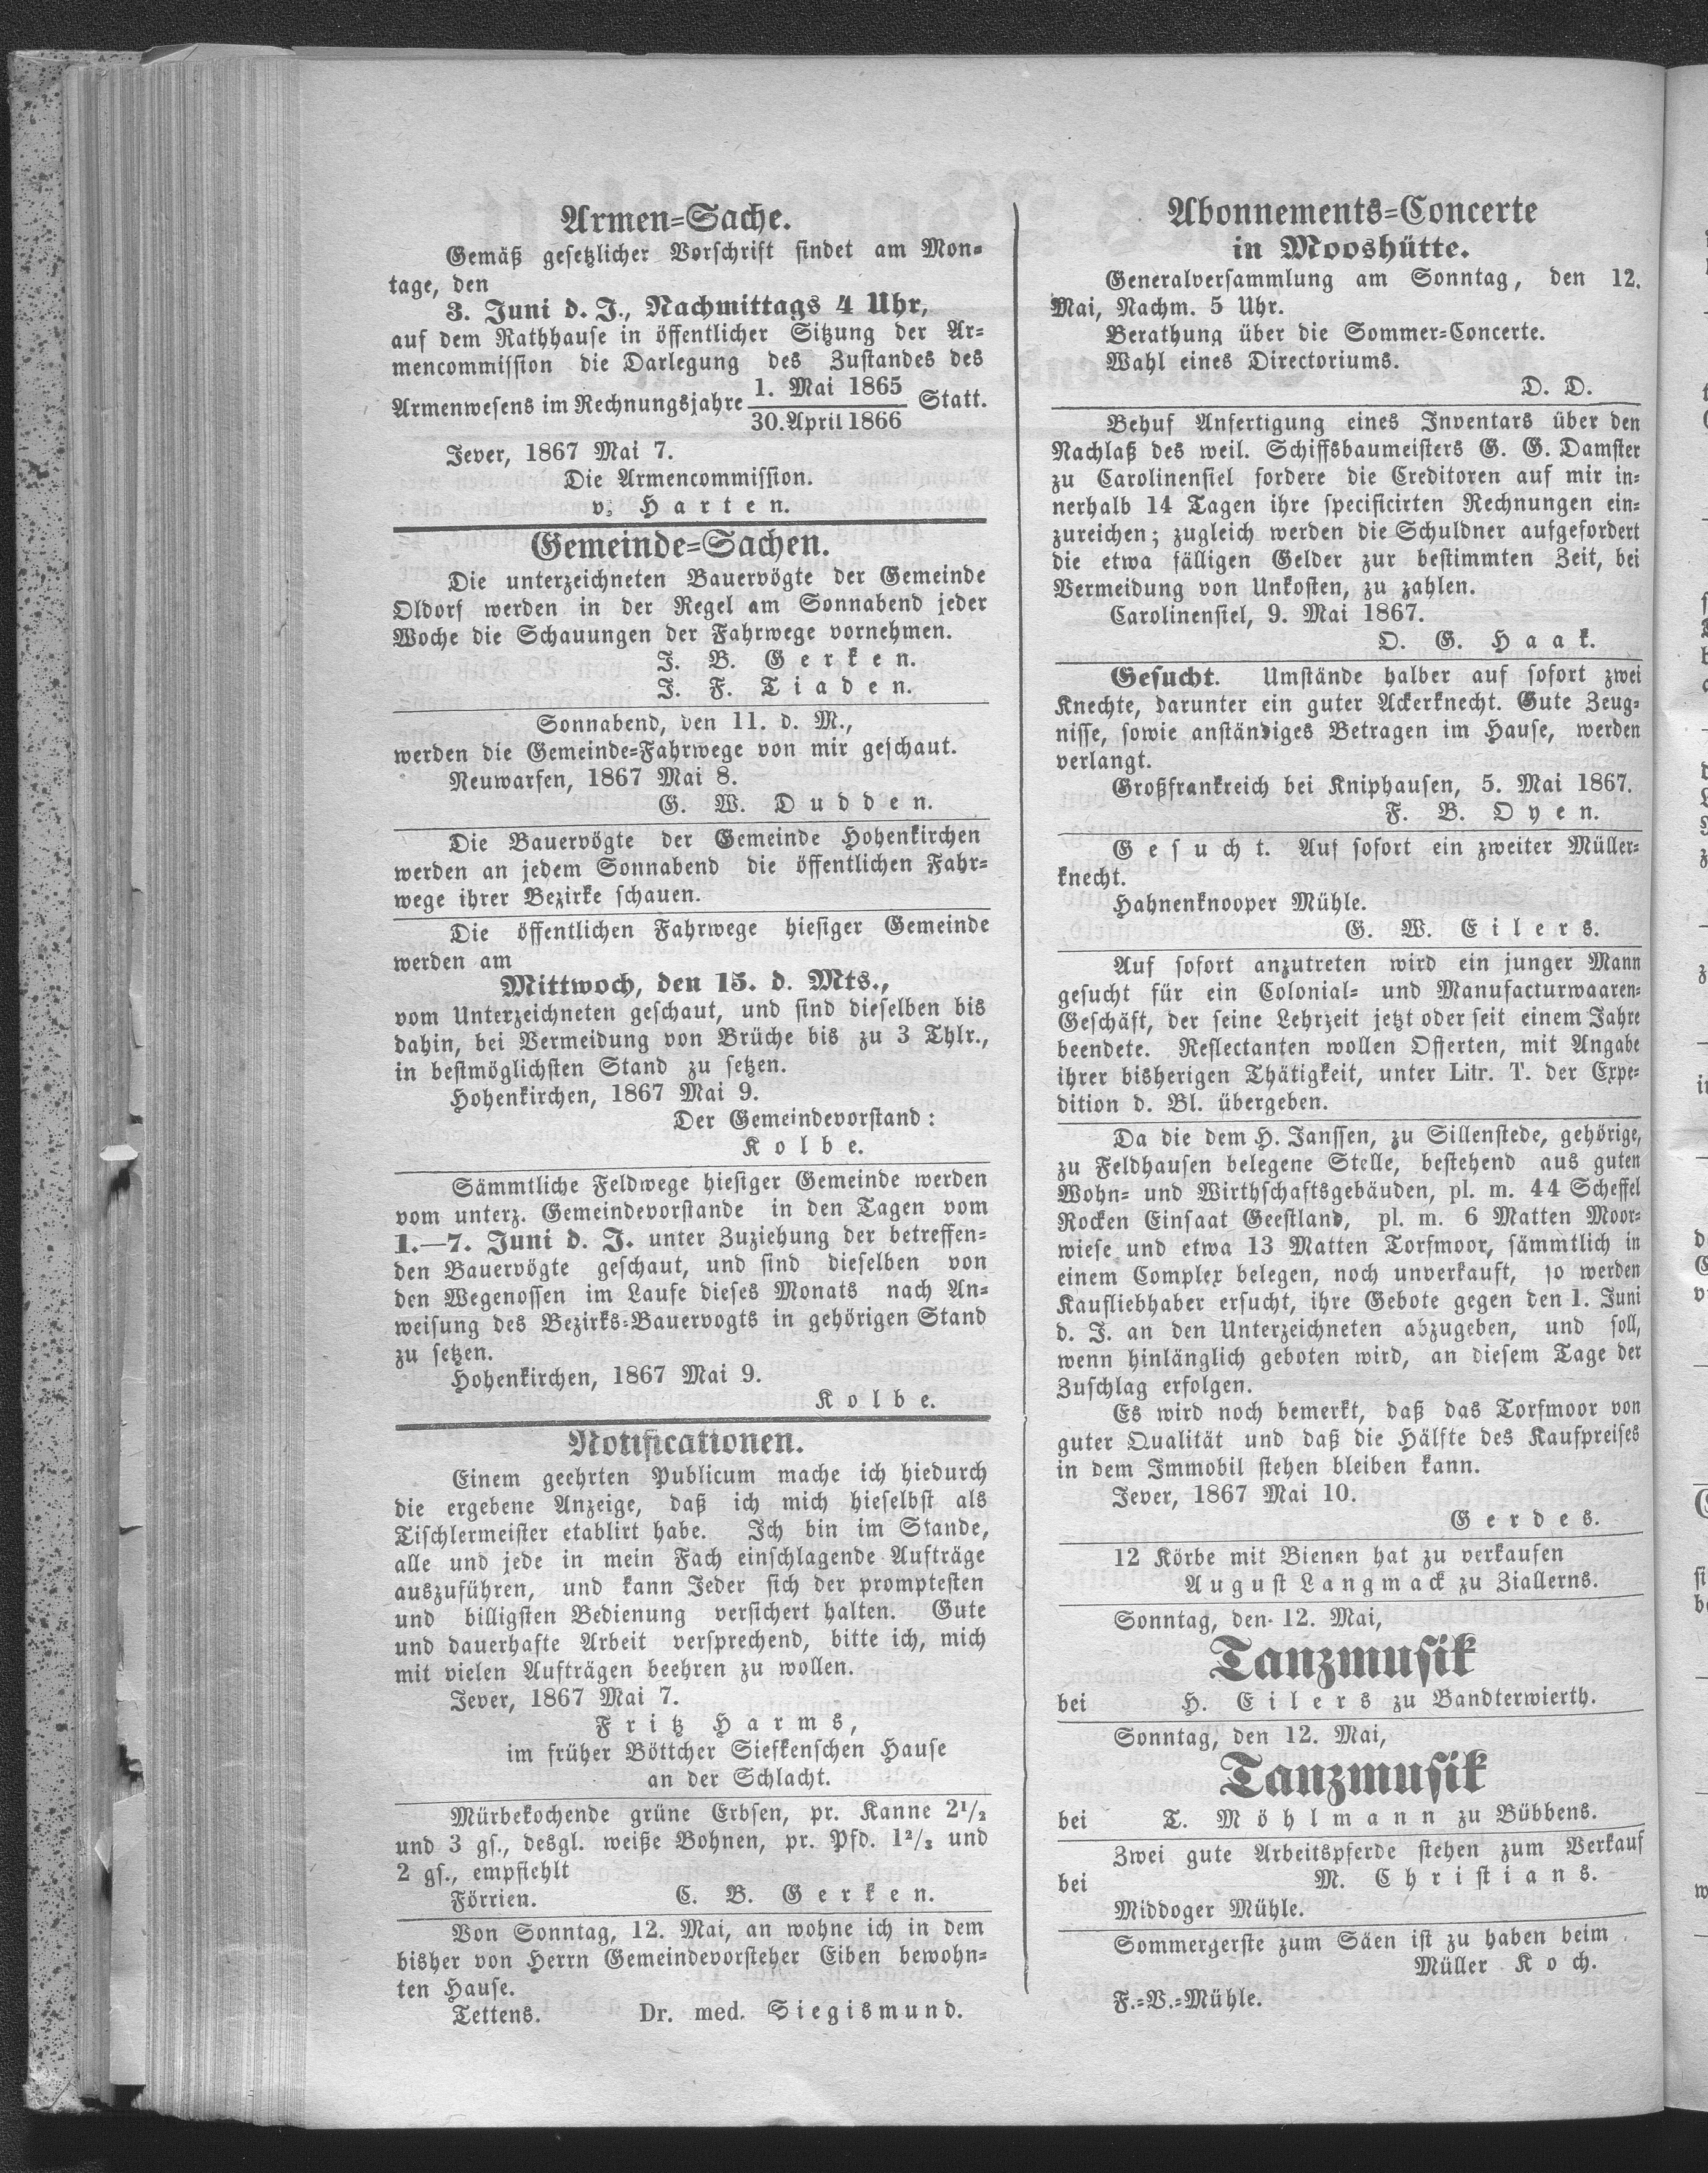 Armen=Sache.
Gemäß gesetzlicher Vorschrift findet am Mon=
tage, den
3. Juni d. J., Nachmittags 4 Uhr,
auf dem Rathhause in öffentlicher Sitzung der Ar=
mencommission die Darlegung des Zustandes des
Armenwesens im Rechnungsjahre 1. Mai 1865 / 30. April 1866 Statt.
Jever, 1867 Mai 7.
Die Armencommission.
v. Harten.
Gemeinde=Sachen.
Die unterzeichneten Bauervögte der Gemeinde
Oldorf werden in der Regel am Sonnabend jeder
Woche die Schauungen der Fahrwege vornehmen.
J. B. Gerken.
J. F. Tiaden.
Sonnabend, den 11. d. M.,
werden die Gemeinde=Fahrwege von mir geschaut.
Neuwarfen, 1867 Mai 8.
G. W. Dudden.
Die Bauervögte der Gemeinde Hohenkirchen
werden an jedem Sonnabend die öffentlichen Fahr=
wege ihrer Bezirke schauen.
Die öffentlichen Fahrwege hiesiger Gemeinde
werden am
Mittwoch, den 15. d. Mts.,
vom Unterzeichneten geschaut, und sind dieselben bis
dahin, bei Vermeidung von Brüche bis zu 3 Thlr.,
in bestmöglichsten Stand zu setzen.
Hohenkirchen, 1867 Mai 9.
Der Gemeindevorstand:
Kolbe.
Sämmtliche Feldwege hiesiger Gemeinde werden
vom unterz. Gemeindevorstande in den Tagen vom
1.—7. Juni d. J. unter Zuziehung der betreffen=
den Bauervögte geschaut, und sind dieselben von
den Wegenossen im Laufe dieses Monats nach An=
weisung des Bezirks=Bauervogts in gehörigen Stand
zu setzen.
Hohenkirchen, 1867 Mai 9.
Kolbe.
Notificationen.
Einem geehrten Publicum mache ich hiedurch
die ergebene Anzeige, daß ich mich hieselbst als
Tischlermeister etablirt habe. Ich bin im Stande,
alle und jede in mein Fach einschlagende Aufträge
auszuführen, und kann Jeder sich der promptesten
und billigsten Bedienung versichert halten. Gute
und dauerhafte Arbeit versprechend, bitte ich, mich
mit vielen Aufträgen beehren zu wollen.
Jever, 1867 Mai 7.
Fritz Harms,
im früher Böttcher Siefkenschen Hause
an der Schlacht.
Mürbekochende grüne Erbsen, pr. Kanne 2½
und 3 gs., desgl. weiße Bohnen, pr. Pfd. 1⅔ und
2 gs., empfiehlt
Förrien. C. B. Gerken.
Von Sonntag, 12. Mai, an wohne ich in dem
bisher von Herrn Gemeindevorsteher Eiben bewohn=
ten Hause.
Tettens. Dr. med. Siegismund.
Abonnements=Concerte
in Mooshütte.
Generalversammlung am Sonntag, den 12.
Mai, Nachm. 5 Uhr.
Berathung über die Sommer=Concerte.
Wahl eines Directoriums.
D. D.
Behuf Anfertigung eines Inventars über den
Nachlaß des weil. Schiffsbaumeisters G. G. Damster
zu Carolinensiel fordere die Creditoren auf mir in=
nerhalb 14 Tagen ihre specificirten Rechnungen ein=
zureichen; zugleich werden die Schuldner aufgefordert
die etwa fälligen Gelder zur bestimmten Zeit, bei
Vermeidung von Unkosten, zu zahlen.
Carolinensiel, 9. Mai 1867.
O. G. Haak.
Gesucht. Umstände halber auf sofort zwei
Knechte, darunter ein guter Ackerknecht. Gute Zeug=
nisse, sowie anständiges Betragen im Hause, werden
verlangt.
Großfrankreich bei Kniphausen, 5. Mai 1867.
F. B. Oyen.
Gesucht. Auf sofort ein zweiter Müller=
knecht.
Hahnenknooper Mühle.
G. W. Eilers.
Auf sofort anzutreten wird ein junger Mann
gesucht für ein Colonial= und Manufacturwaaren=
Geschäft, der seine Lehrzeit jetzt oder seit einem Jahre
beendete. Reflectanten wollen Offerten, mit Angabe
ihrer bisherigen Thätigkeit, unter Litr. T. der Expe=
dition d. Bl. übergeben.
Da die dem H. Janssen, zu Sillenstede, gehörige,
zu Feldhausen belegene Stelle, bestehend aus guten
Wohn= und Wirthschaftsgebäuden, pl. m. 44 Scheffel
Rocken Einsaat Geestland, pl. m. 6 Matten Moor=
wiese und etwa 13 Matten Torfmoor, sämmtlich in
einem Complex belegen, noch unverkauft, so werden
Kaufliebhaber ersucht, ihre Gebote gegen den 1. Juni
d. J. an den Unterzeichneten abzugeben, und soll,
wenn hinlänglich geboten wird, an diesem Tage der
Zuschlag erfolgen.
Es wird noch bemerkt, daß das Torfmoor von
guter Qualität und daß die Hälfte des Kaufpreises
in dem Immobil stehen bleiben kann.
Jever, 1867 Mai 10.
Gerdes.
12 Körbe mit Bienen hat zu verkaufen
August Langmack zu Ziallerns.
Sonntag, den 12. Mai,
Tanzmusik
bei H. Eilers zu Bandterwierth.
Sonntag, den 12. Mai,
Tanzmusik
bei T. Möhlmann zu Bübbens.
Zwei gute Arbeitspferde stehen zum Verkauf
bei M. Christians.
Middoger Mühle.
Sommergerste zum Säen ist zu haben beim
Müller Koch.
F.=V.=Mühle.